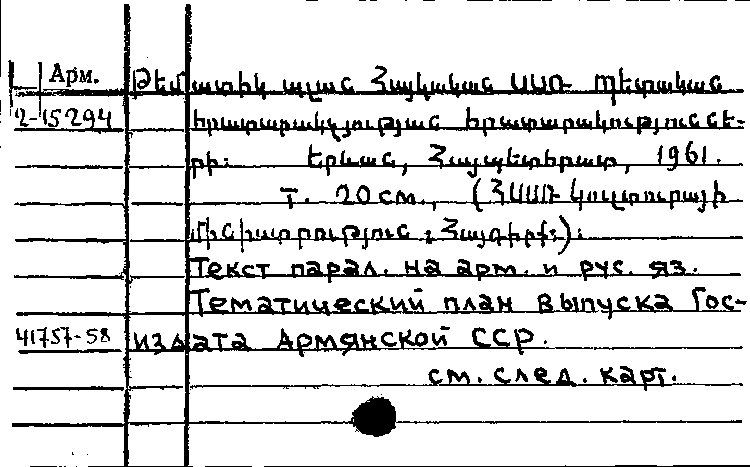 Арм. Թեմատիկ պլան Հայկական ՍՍՌ Պետական
2-15294 հրատարակչության հրատարակություննե-
րի։ Երևան, Հայպետհրատ, 1961.
т. 20 см., (ՀՍՍՌ Կուլտուրայի
մինիստրություն, Հայգիրք)։
Текст парал. на арм. и рус. яз.
Тематический план выпуска Гос-
41757-58 издата Армянской ССР.
см. след. карт.